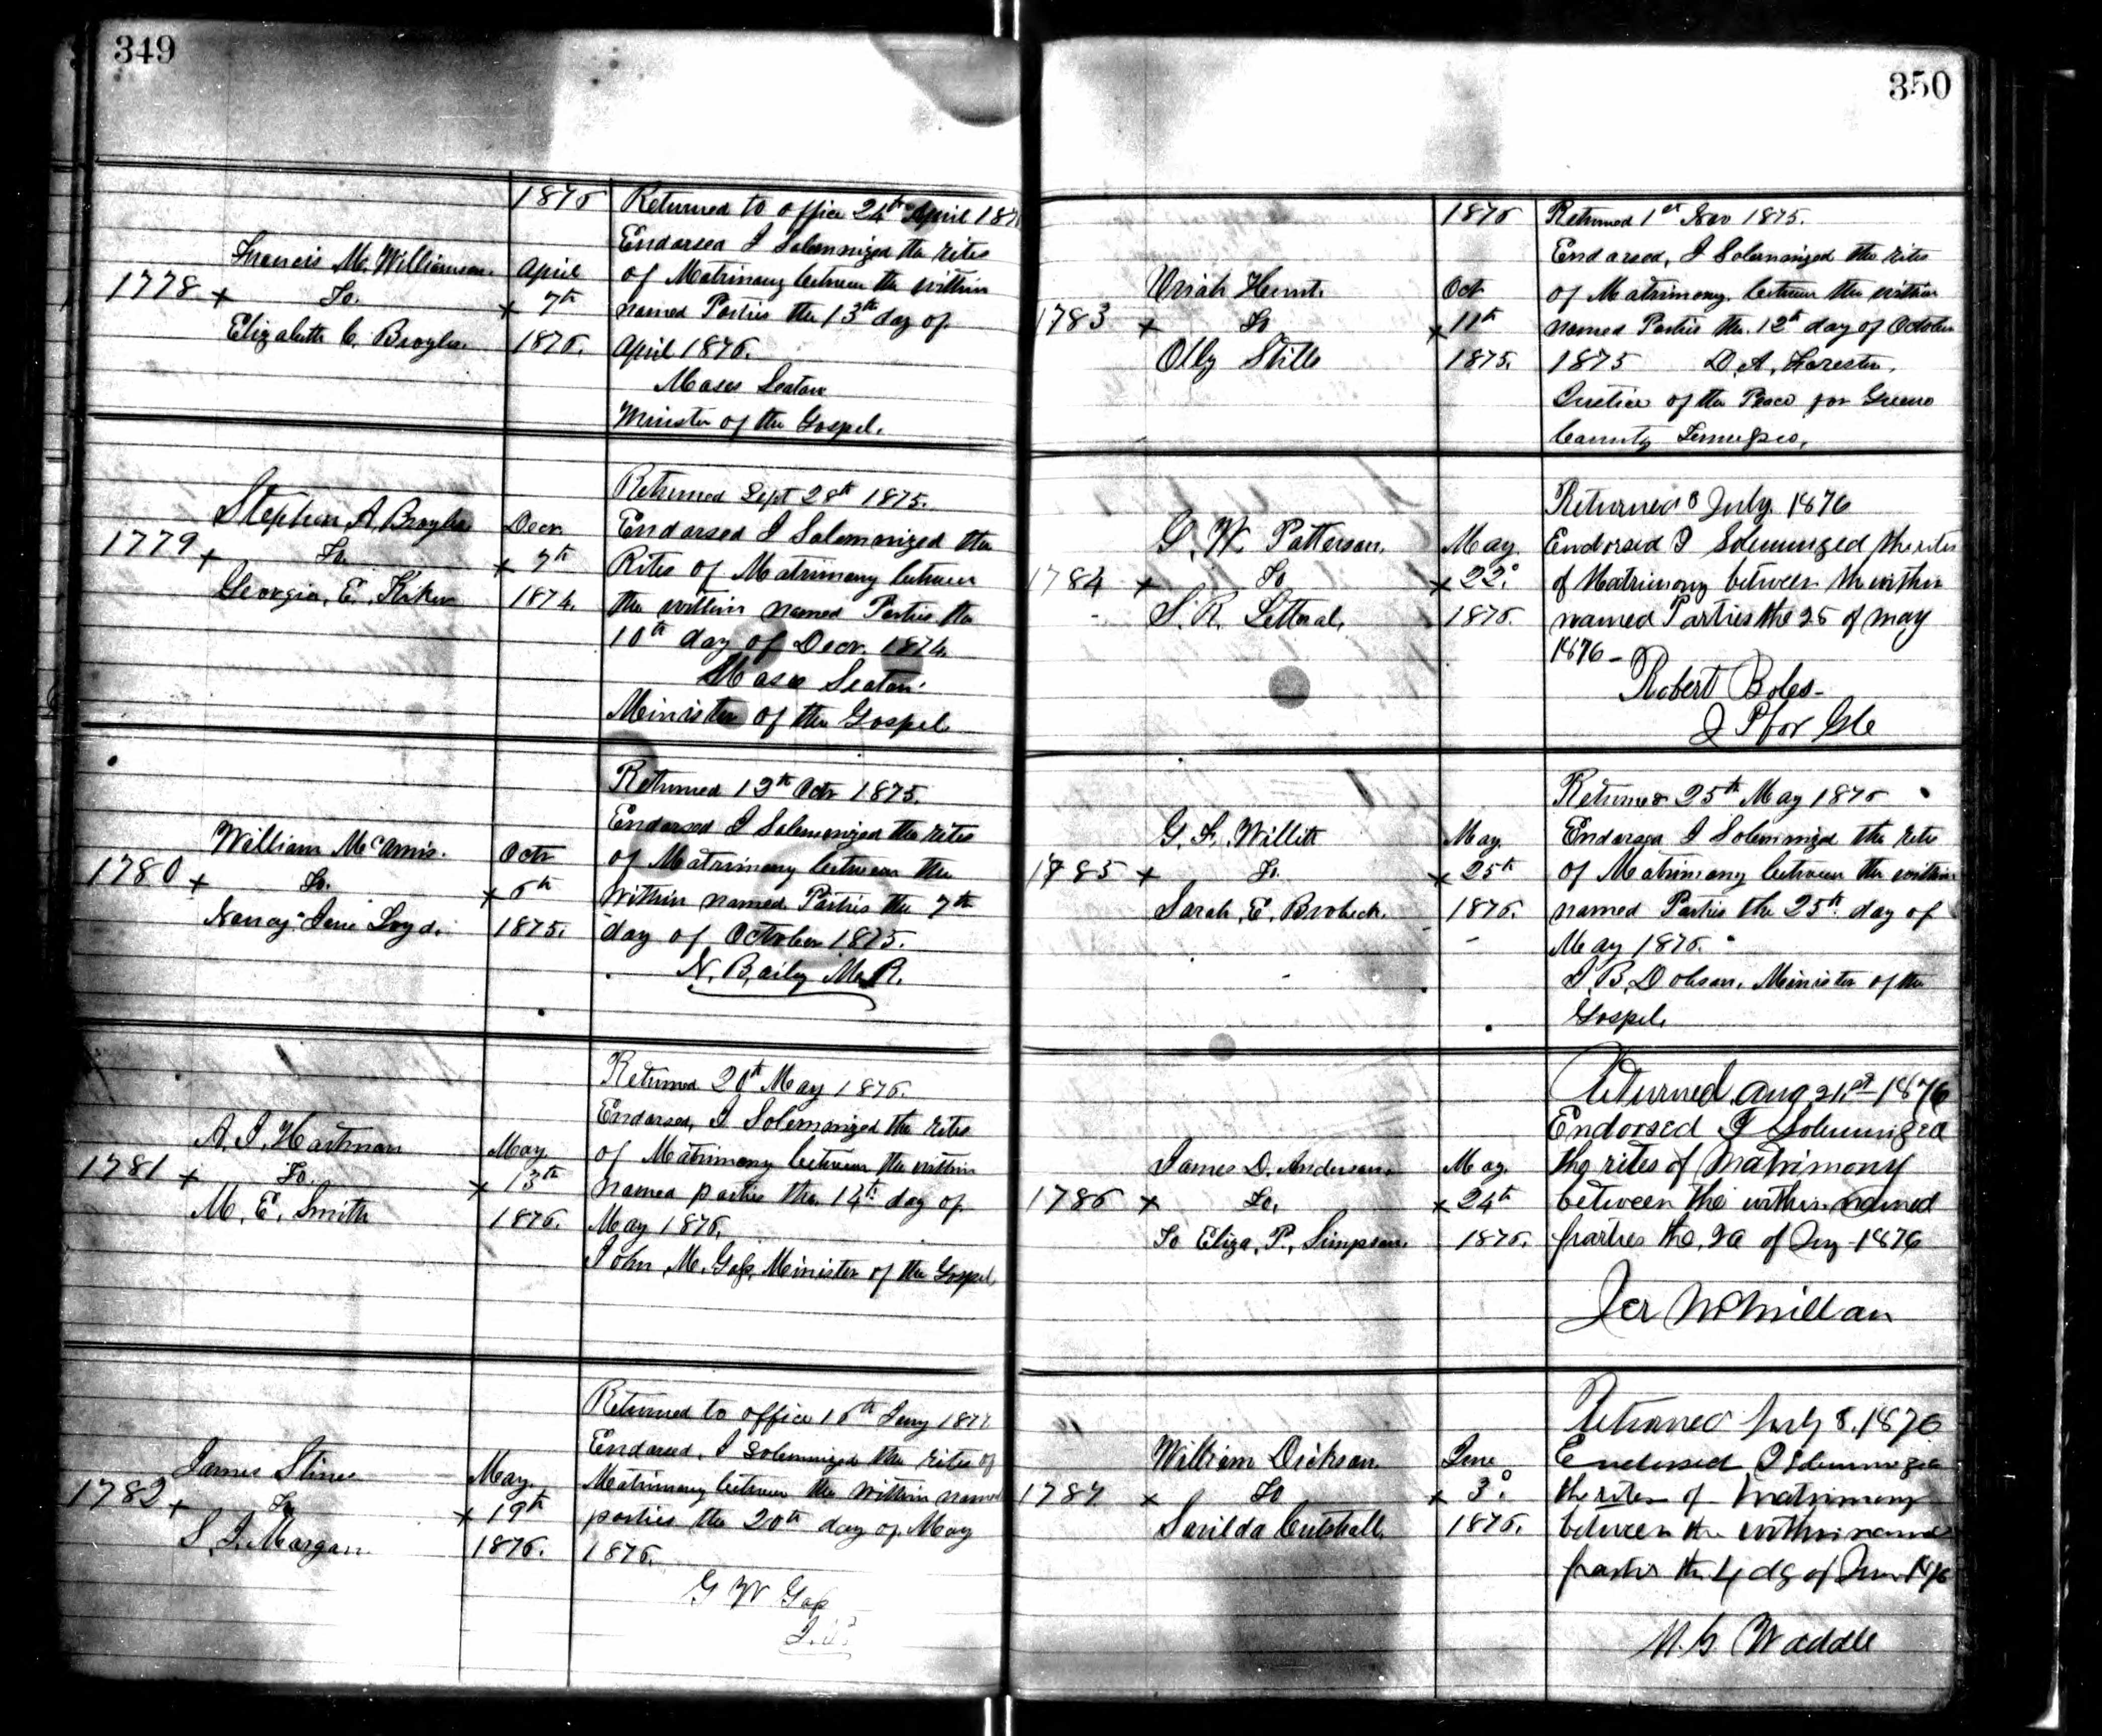 349
1876
Returned to office 24th April 187
Endorsed I Solemnized the rites
Francis M. Williamson
April
of Matrimony between the within
1778 + To. + 7th
named Parties the 13th day of
Elizabeth C. Broyles.
1876.
April 1876.
Moses Seaton
Minister of the Gospel.
Returned Sept 28th 1875.
Stephen A Broyles
Decr.
Endorsed I Solemnized the
1779 + To. + 7th
Rites of Matrimony between
Georgia, E. Kiker
1874.
the within named Parties the
10th day of Decr. 1874.
Moses Seaton.
Minister of the Gospel
Returned 13th Octr 1875.
Endorsed I Solemnized the rites
William McAmis.
Octr
of Matrimony between the
1780 + To. + 6th
within named Parties the 7th
Nancy Jane Loyd.
1875.
day of October 1875.
N. Baily M.R.
Returned 20th May 1876.
Endorsed, I Solemnized the rites
A. J. Hartman
May
of Matrimony between the within
1781 + To. + 13th
named parties the 14th day of
M. E. Smith
1876.
May 1876.
John M. Gap, Minister of the Gospel
Returned to office 16th Jany 1877
Endorsed, I Solemnized the rites of
James Stines
May.
Matrimony between the within named
1782 + To + 19th
parties the 20th day of May
S. J. Morgan
1876.
1876.
G W Gap
350
1876
Returned 1st Nov 1875.
Endorsed, I Solemnized the rites
Uriah Hunt.
Oct
of Matrimony. between the within
1783 + To + 11th
named Parties the 12th day of October
Olly Stills
1875.
1875 D. A. Forester.
Justice of the Peace for Greene
County Tennessee.
Returned 8 July. 1876
G. W. Patterson.
May.
Endorsed I Solemnized the rites
1784 + To + 22d
of Matrimony between the within
S. R. Litteral.
1876.
named Parties the 25 of may
1876 -
Robert Boles -
J P for G C
Returned 25th May 1876
G. F. Willett
May.
Endorsed I Solemnized the rites
1785 + To. + 25th
of Matrimony between the within
Sarah, E. Brobeck.
1876.
named Parties the 25th day of
May 1876.
I. B. Dobson. Minister of the
Gospel.
Returned Aug 21.st - 1876
Endorsed I Solemnized
James D. Anderson.
May.
the rites of Matrimony
1786 + To. + 24th
between the within named
To Eliza, P. Simpson.
1876.
parties the of 1876
McMillan
Returned July 8. 1876
William Dickson
June
Endorsed I Solemnized
1787 + To + 3d
the rites of Matrimony
Sarilda Cutshall.
1876.
between the within named
parties the 4 dy of June 1876
Waddle